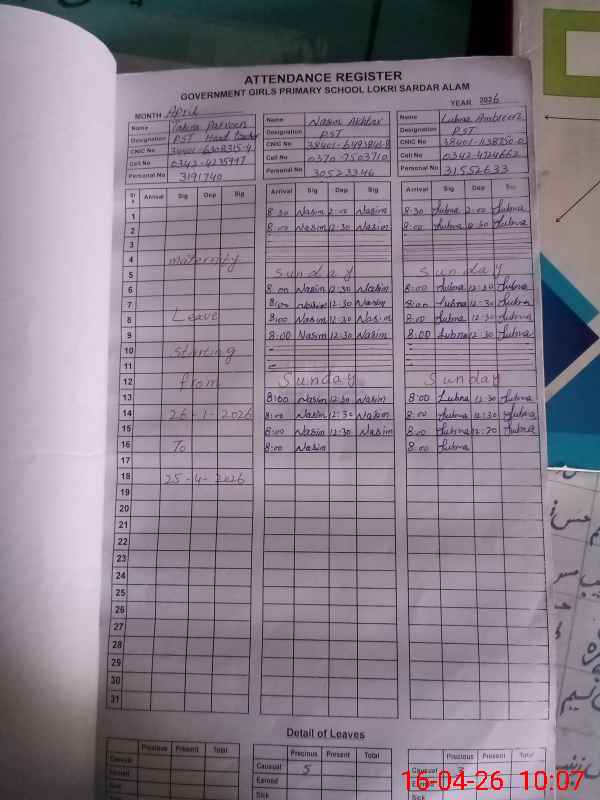 ATTENDANCE REGISTER
GOVERNMENT GIRLS PRIMARY SCHOOL LOKRI SARDAR ALAM
MONTH April YEAR 2026
Name Tahira Parveen Name Nasim Akhtar Name Lubna Ambreen
Designation PST Head Teacher Designation PST Designation PST
CNIC No CNIC No CNIC No
Cell No 0343-4235997 Cell No 0370-7503710 Cell No 0342-4724662
Personal No 3191740 Personal No 30523346 Personal No 31552633
Sr # Arrival Sig Dep Sig Arrival Sig Dep Sig Arrival Sig Dep Sig
1 8:30 Nasim 2:00 Nasim 8:30 Lubna 2:00 Lubna
2 8:00 Nasim 12:30 Nasim 8:00 Lubna 12:30 Lubna
3
4 maternity
5 Sunday Sunday
6 8:00 Nasim 12:30 Nasim 8:00 Lubna 12:30 Lubna
7 8:00 Nasim 12:30 Nasim 8:00 Lubna 12:30 Lubna
8 Leave 8:00 Nasim 12:30 Nasim 8:00 Lubna 12:30 Lubna
9 8:00 Nasim 12:30 Nasim 8:00 Lubna 12:30 Lubna
10 starting
11
12 from Sunday Sunday
13 8:00 Nasim 12:30 Nasim 8:00 Lubna 12:30 Lubna
14 26-1-2026 8:00 Nasim 12:30 Nasim 8:00 Lubna 12:30 Lubna
15 8:00 Nasim 12:30 Nasim 8:00 Lubna 12:20 Lubna
16 To 8:00 Nasim 8:00 Lubna
17
18 25-4-2026
19
20
21
22
23
24
25
26
27
28
29
30
31
Detail of Leaves
Precious Present Total Precious Present Total Precious Present Total
Causual Causual 5 Causual
Earned Earned Earned
Sick Sick
16-04-26 10:07